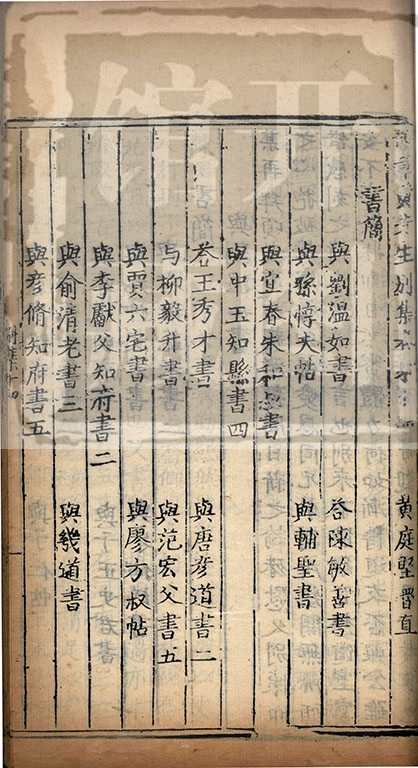 先生別集
黃庭堅魯直
書簡
與劉溫如書 答陳敏善書
與孫惇夫帖 與輔聖書
與宜春朱和叔書
與中玉知縣書四
答王秀才書 與唐彥道書二
与柳毅升書 與范宏父書五
與賈六宅書 與廖方叔帖
與李獻父知府書二
與俞清老書三 與幾道書
與彥脩知府書五